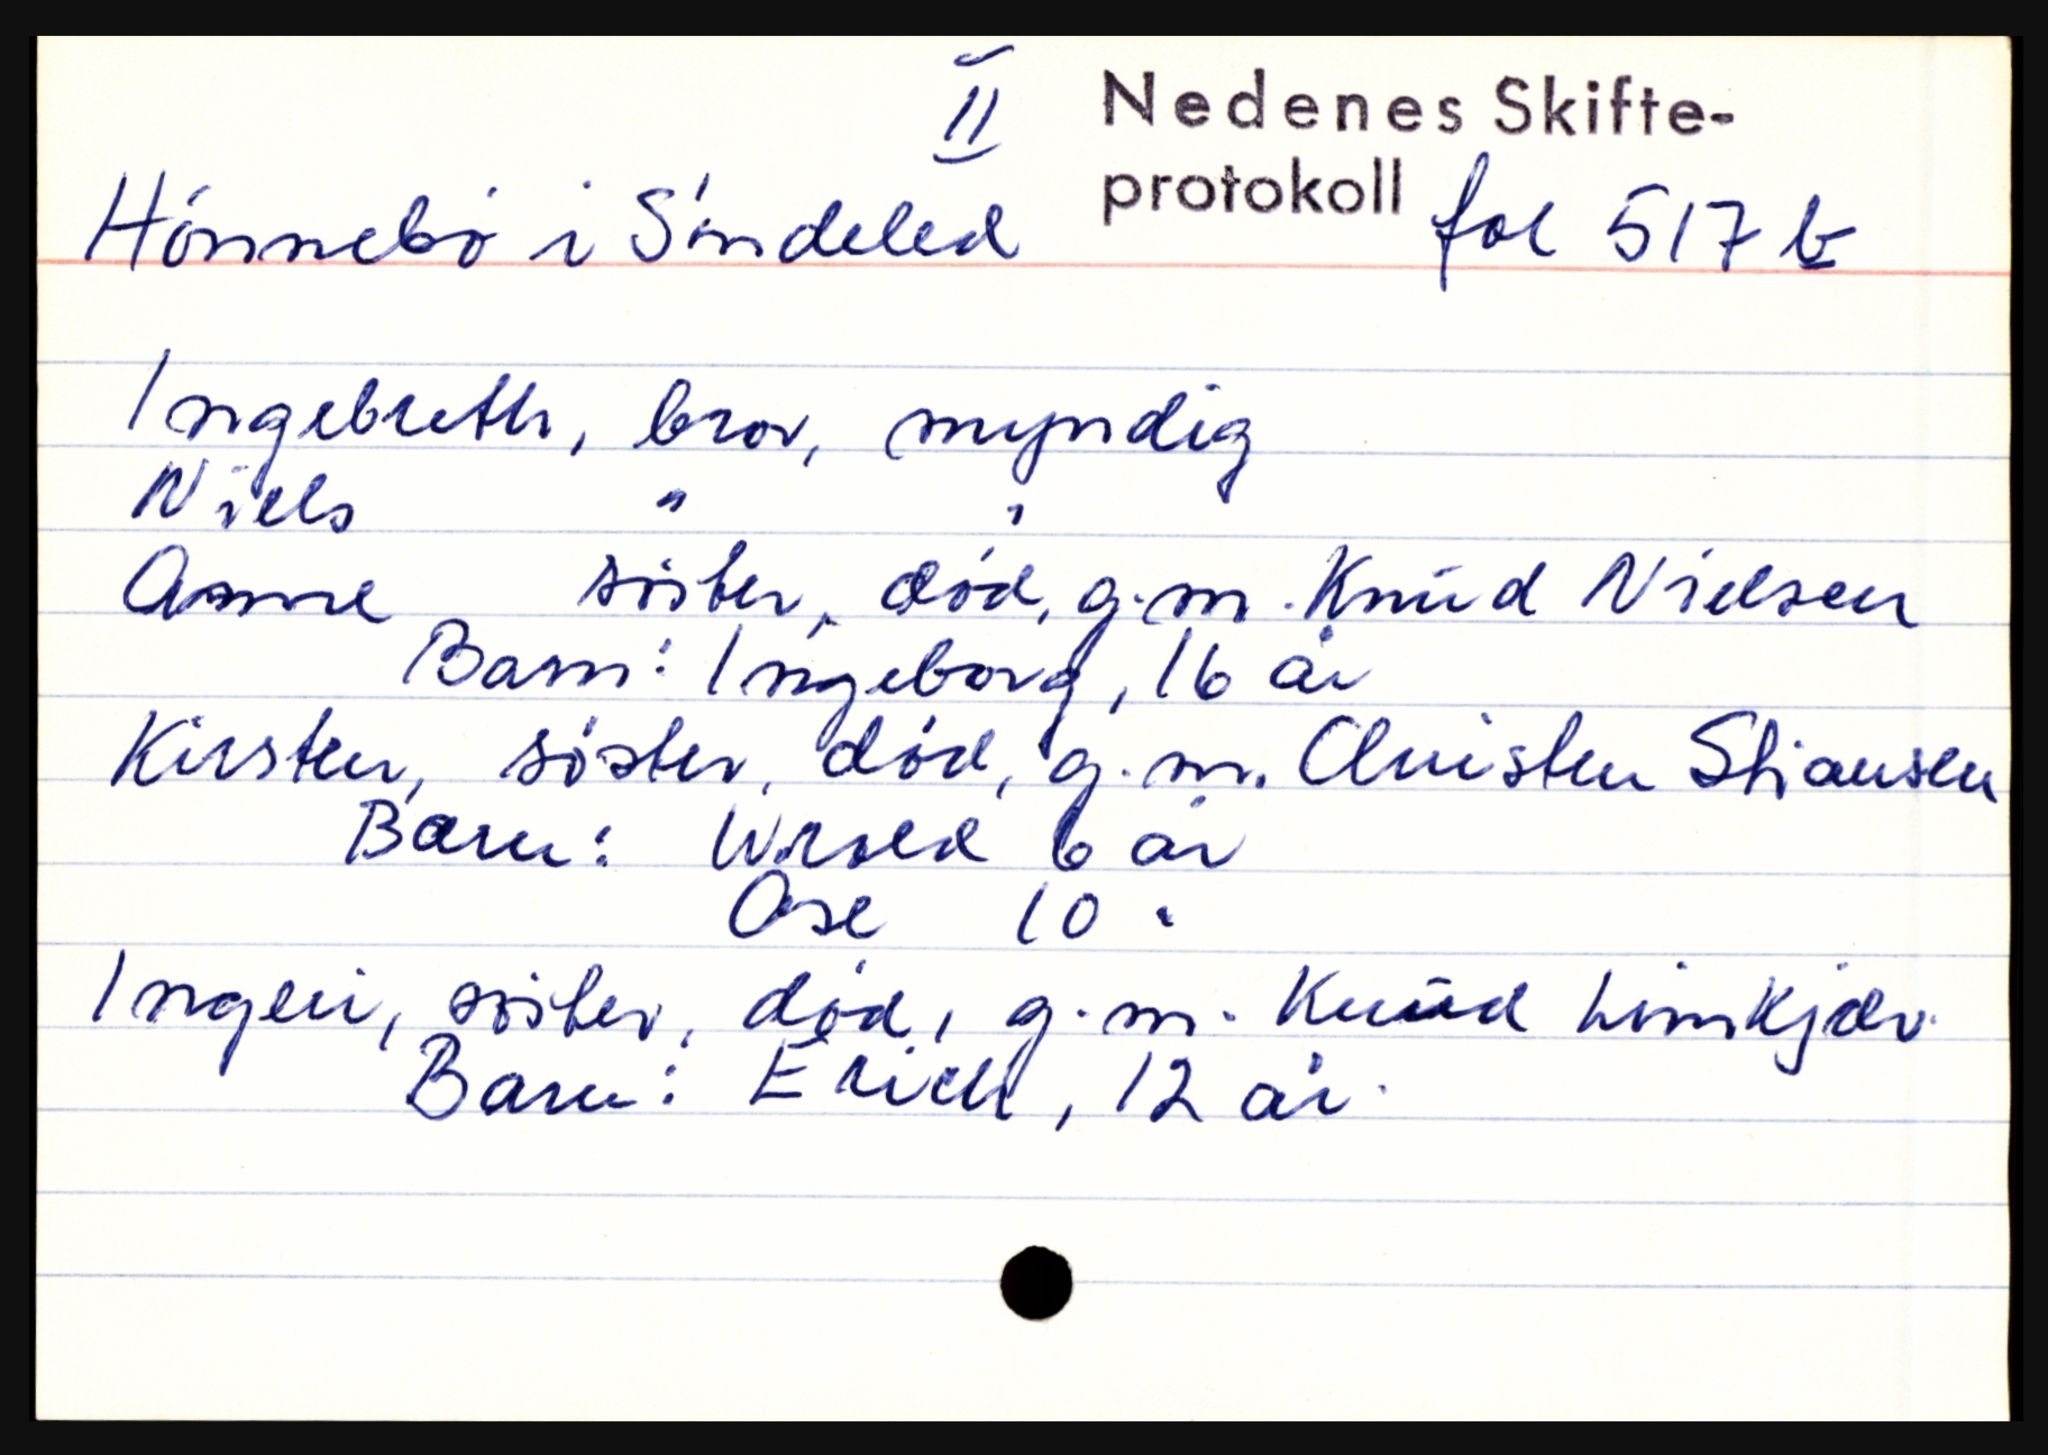 II
Nedenes Skifte-
protokoll
Hónnebó i Sóndeled fol 517 b
Ingebreth, bror, myndig
Niels " "
Anne sóster, dód, g.m. Knud Nielsen
Barn: Ingeborg, 16 år
Kirsten, sóster, dód, g.m. Christen Stiansen
Barn: Wrold 6 år
Ose 10 "
Ingeri, sóster, dód, g.m. Knud Limkjær.
Barn: Erich, 12 år.